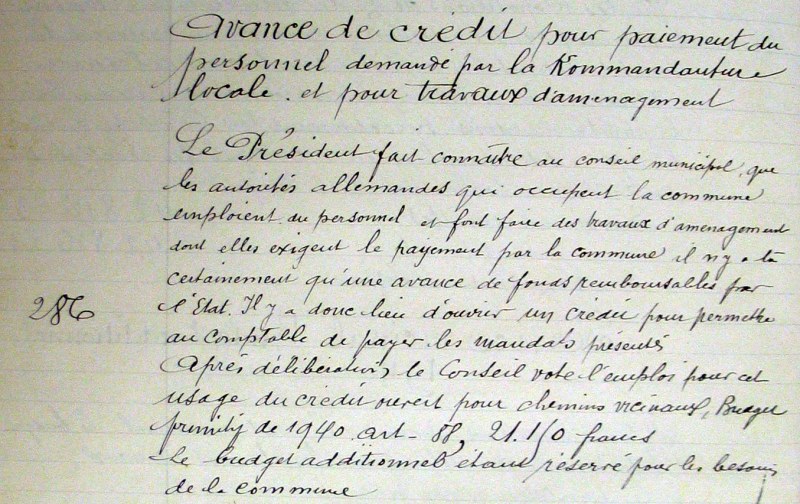 Avance de crédit pour paiement du
personnel demandé par la Kommandanture
locale. et pour travaux d'aménagement
Le Président fait connaître au conseil municipal, que
les autorités allemandes qui occupent la commune
emploient du personnel et font faire des travaux d'aménagement
dont elles exigent le payement par la commune il n'y a là
certainement qu'une avance de fonds remboursables par
286
l'Etat. Il y a donc lieu d'ouvrir un crédit pour permettre
au comptable de payer les mandats présentés
Après délibération le Conseil vote l'emploi pour cet
usage du crédit ouvert pour chemins vicinaux, Budget
primitif de 1940. art- 88, 21.150 francs
Le budget additionnel étant réservé pour les besoins
de la commune